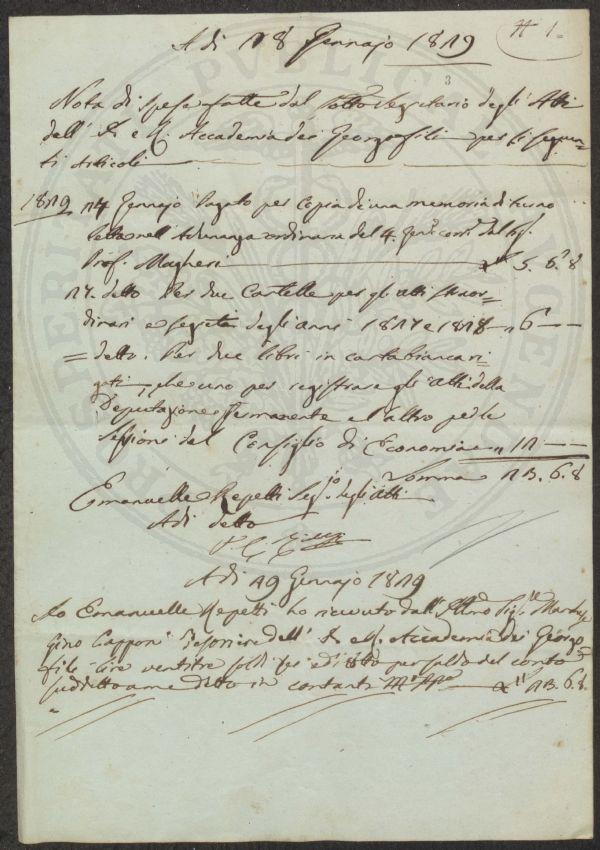 # 1.
A dì 18 Gennajo 1819
3
Nota di spese fatte dal Sotto Segretario degli Atti
dell' I. e R. Accademia dei Georgofili per li seguen-
ti Articoli
1819 14 Gennajo Pagato per Copia di una memoria di turno
letta nell' Adunanza ordinaria del 4. dal Sig.
Prof. Magheri 5. 6. 8
17. detto Per due Cartelle per gli atti straor-
dinari e segreti degli anni 1817 e 1818 - " 6 - -
= detto. Per due libri in carta bianca ri-
gati, che uno per registrare gli atti della
Deputazione Permanente e l'altro per le
Sessioni del Consiglio di Economia " 12 - -
Somma 23. 6. 8
Emanuelle Repetti Seg.io degli atti
A dì detto
A dì 19 Gennajo 1819
Io Emanuelle Repetti ho ricevuto dall' Sig.
Gino Capponi Tesoriere dell' I. e R. Accademia dei Georgo-
fili lire ventitre soldi sei e d. otto per saldo del conto
suddetto a me detto in contanti 23. 6. 8.
PVBLICAE
PROSPERITATI